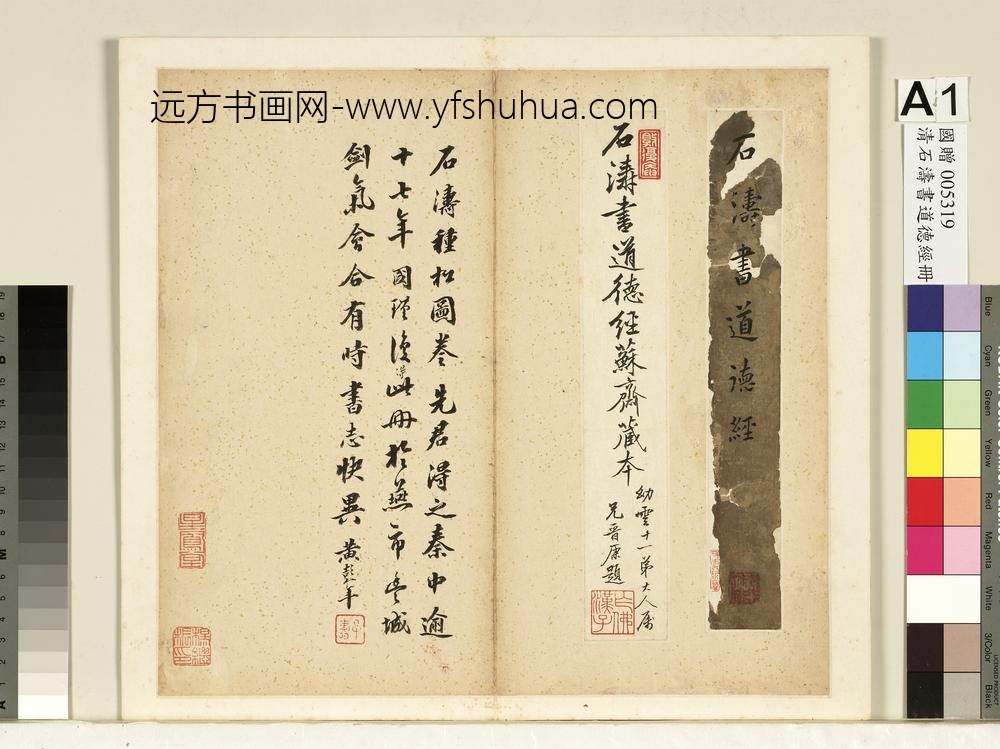 远方书画网-www.yfshuhua.com
A1
國贈 005319
清石濤書道德經冊
石濤書道德經
石濤書道德經蘇齋藏本
幼雲十一弟大人屬
兄晉康題
石濤種松圖卷先君得之秦中逾
十七年國瑾復得此冊於燕市豐城
劍氣會合有時書志快異 黃彭年
Blue
Cyan
Green
Yellow
Red
Magenta
White
3/Color
Black